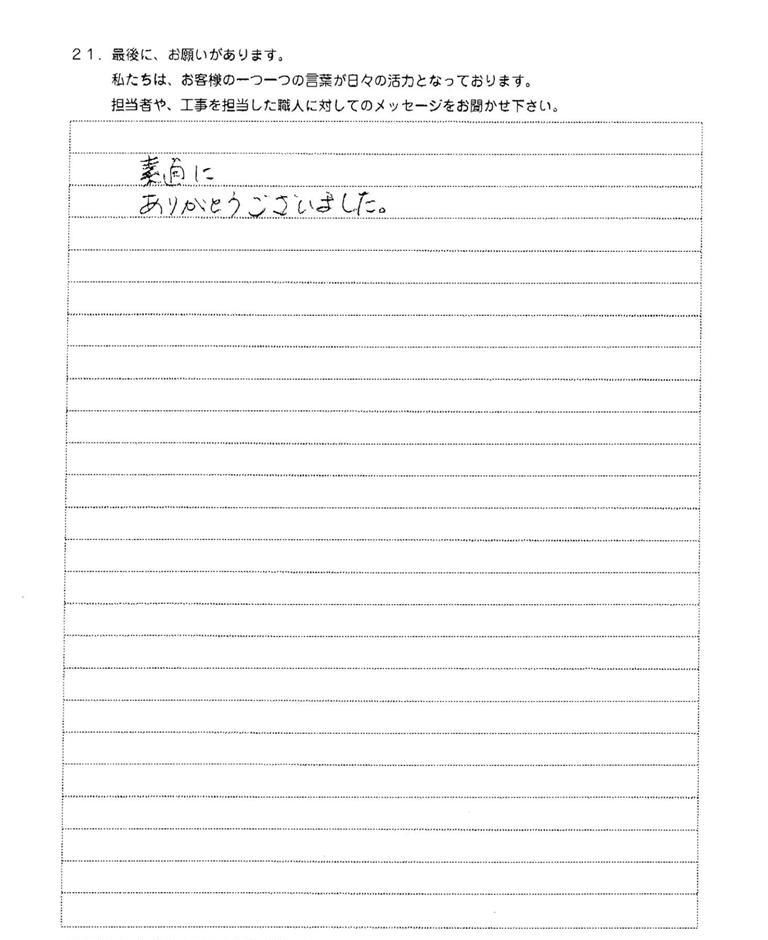 21. 最後に、お願いがあります。
私たちは、お客様の一つ一つの言葉が日々の活力となっております。
担当者や、工事を担当した職人に対してのメッセージをお聞かせ下さい。
素適に
ありがとうございました。